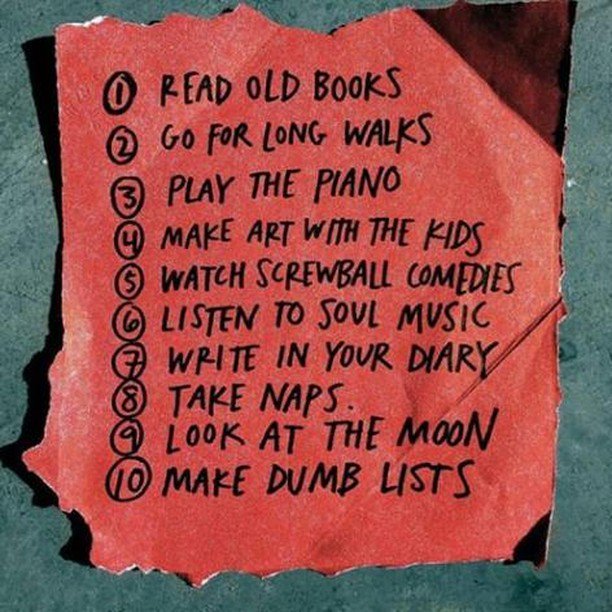 1 READ OLD BOOKS
2 GO FOR LONG WALKS
3 PLAY THE PIANO
4 MAKE ART WITH THE KIDS
5 WATCH SCREWBALL COMEDIES
6 LISTEN TO SOUL MUSIC
7 WRITE IN YOUR DIARY
8 TAKE NAPS.
9 LOOK AT THE MOON
10 MAKE DUMB LISTS